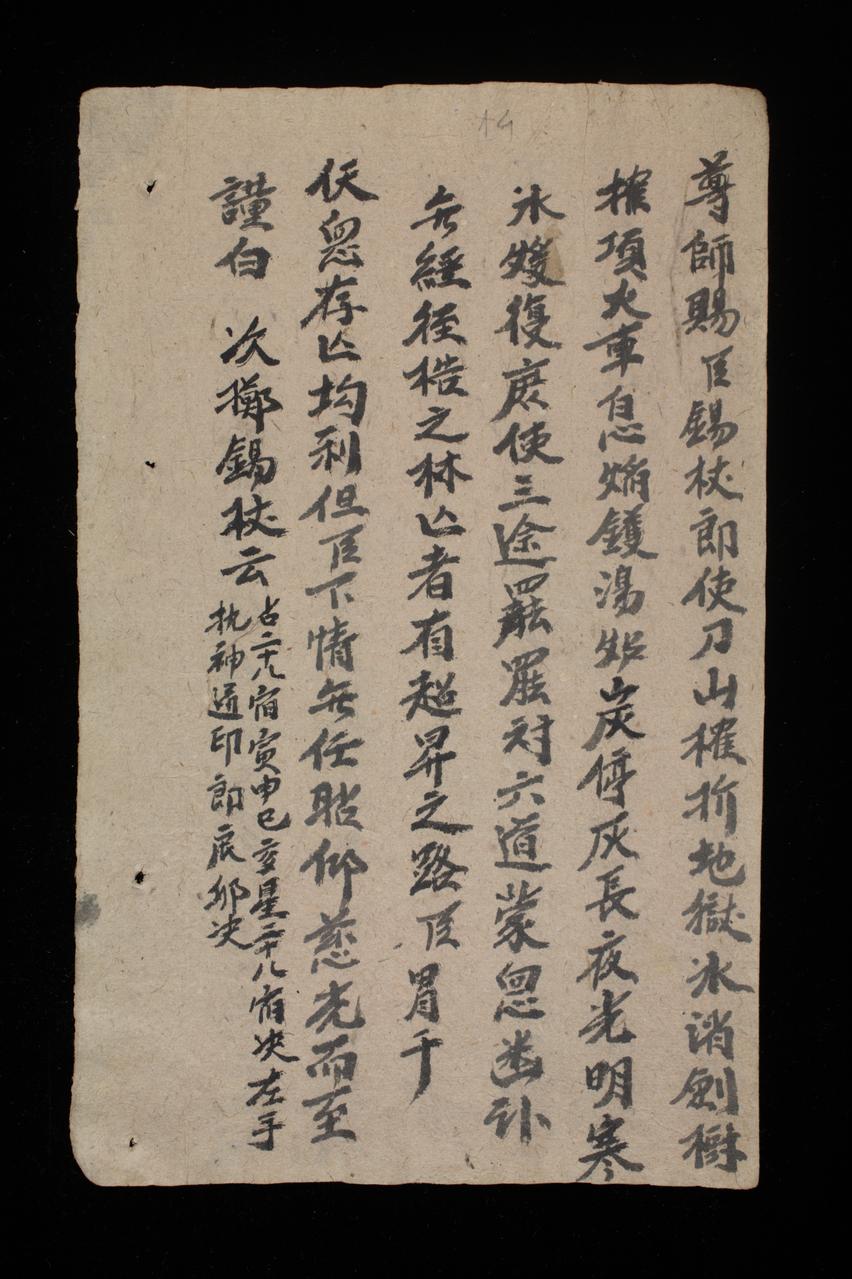 14
尊師賜臣錫杖即使刀山摧折地獄冰消劍樹
摧項火車息焰鑊湯炉炭停灰長夜光明寒
氷煖復庶使三途罷罪対六道蒙恩幽卦
無經徑梏之林亾者有超昇之路臣冒干
伏恩存亾均利但臣下情無任貼仰慈光而至
謹白 次擲錫杖云
占二十八宿寅申巳亥星二十八宿决左手
执神通印郎底邪决